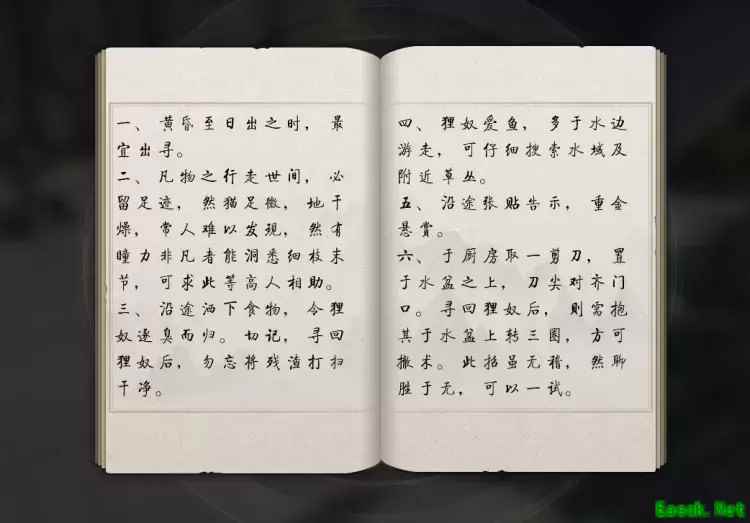 一、黄昏至日出之时，最
宜出寻。
二、凡物之行走世间，必
留足迹，然猫足微，地干
燥，常人难以发现，然有
瞳力非凡者能洞悉细枝末
节，可求此等高人相助。
三、沿途洒下食物，令狸
奴逐臭而归。切记，寻回
狸奴后，勿忘将残渣打扫
干净。
四、狸奴爱鱼，多于水边
游走，可仔细搜索水域及
附近草丛。
五、沿途张贴告示，重金
悬赏。
六、于厨房取一剪刀，置
于水盆之上，刀尖对齐门
口。寻回狸奴后，则需抱
其于水盆上转三圈，方可
撤术。此招虽无稽，然聊
胜于无，可以一试。
Eeeok.Net